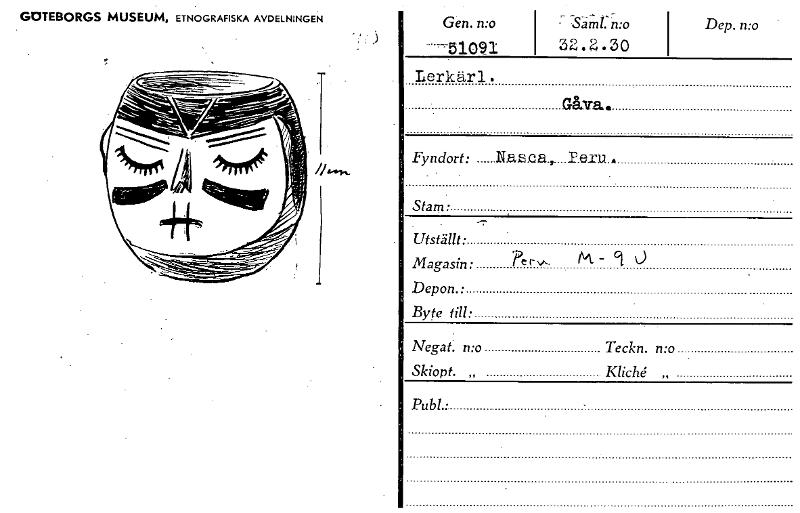 GÖTEBORGS MUSEUM, ETNOGRAFISKA AVDELNINGEN
11 cm
Gen. n:o Saml. n:o Dep. n:o
51091 32.2.30
Lerkärl.
Gåva.
Fyndort: Nasca, Peru.
Stam:
Utställt:
Magasin: Peru M-9 U
Depon.:
Byte till:
Negat. n:o Teckn. n:o
Skiopt. „ Kliché „
Publ.: